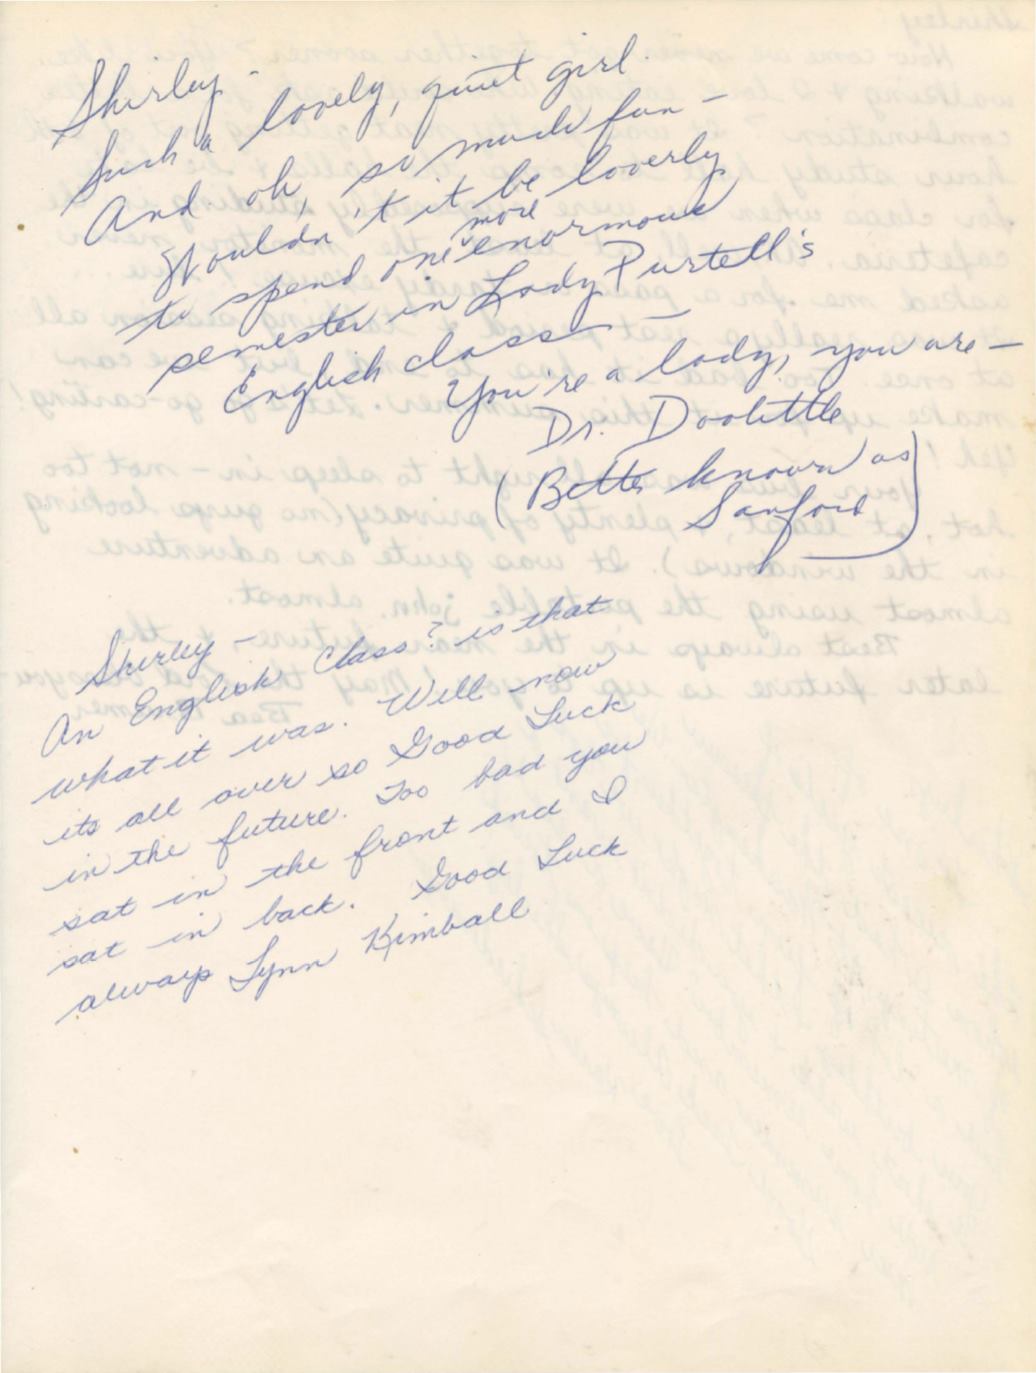 Shirley -
Such a lovely, quiet girl.
And oh, so much fun -
Wouldn't it be loverly
to spend one more enormous
semester in Lady Purtell's
English class -
You're a lady, you are -
Dr. Doolittle
(Better known as
Sanford)
Shirley -
An English Class? is that
what it was. Well now
its all over so Good Luck
in the future. Too bad you
sat in the front and I
sat in back. Good Luck
always Lynn Kimball